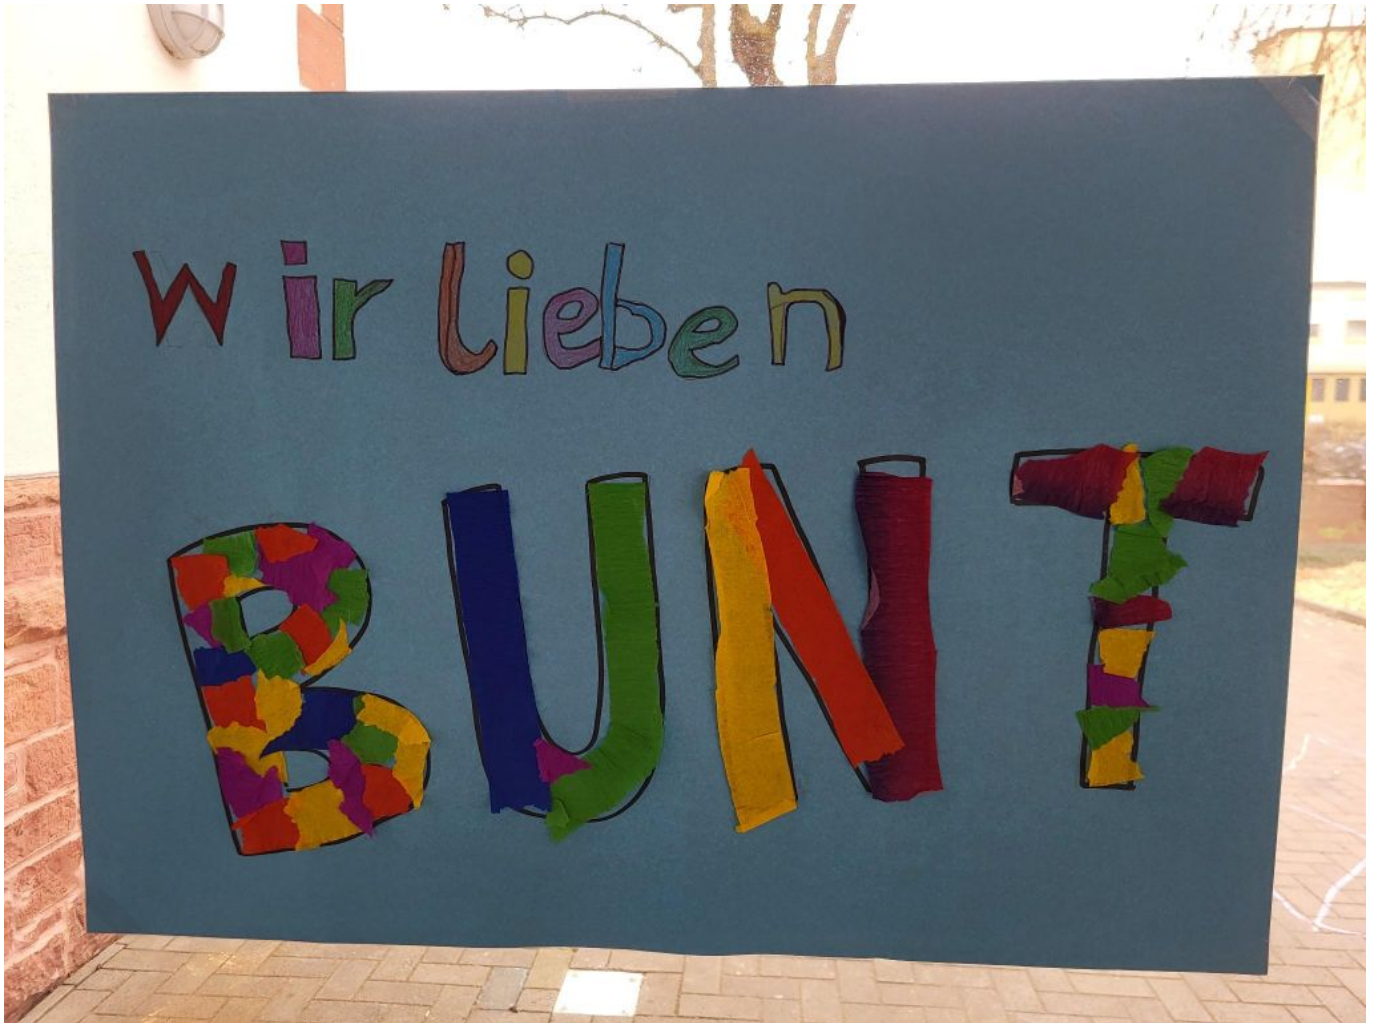 wir lieben
BUNT